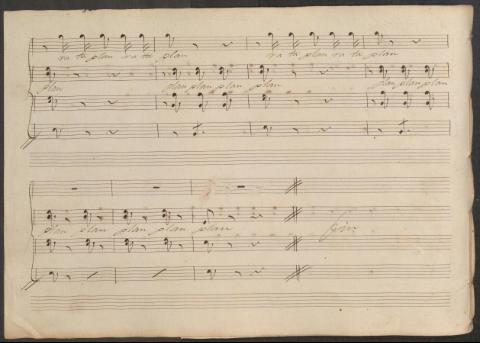 ra ta plan ra ta plan ra ta plan ra ta plan
plan plan plan plan plan plan plan plan
plan plan plan plan plan